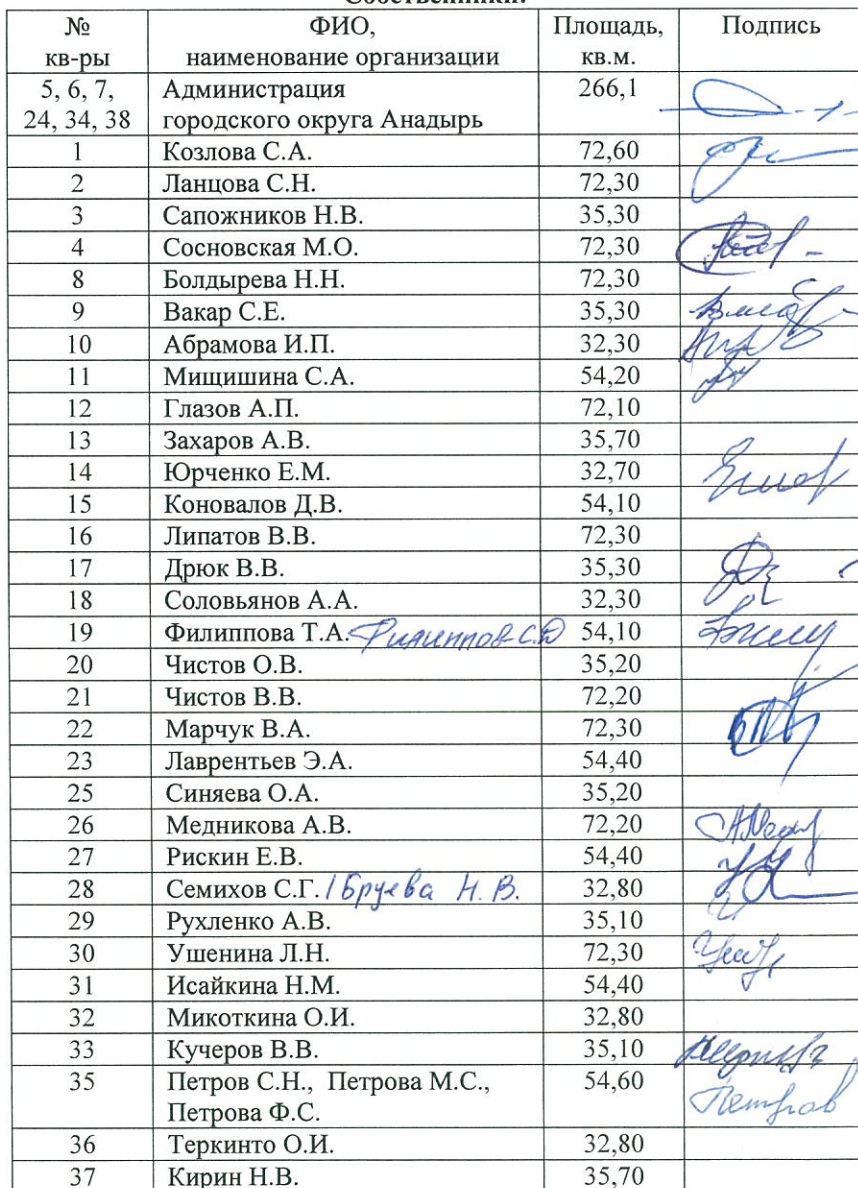 Собственники:
№ кв-ры ФИО, наименование организации Площадь, кв.м. Подпись
5, 6, 7, 24, 34, 38 Администрация городского округа Анадырь 266,1
1 Козлова С.А. 72,60
2 Ланцова С.Н. 72,30
3 Сапожников Н.В. 35,30
4 Сосновская М.О. 72,30
8 Болдырева Н.Н. 72,30
9 Вакар С.Е. 35,30
10 Абрамова И.П. 32,30
11 Мищишина С.А. 54,20
12 Глазов А.П. 72,10
13 Захаров А.В. 35,70
14 Юрченко Е.М. 32,70
15 Коновалов Д.В. 54,10
16 Липатов В.В. 72,30
17 Дрюк В.В. 35,30
18 Соловьянов А.А. 32,30
19 Филиппова Т.А. Филиппов С.Д 54,10
20 Чистов О.В. 35,20
21 Чистов В.В. 72,20
22 Марчук В.А. 72,30
23 Лаврентьев Э.А. 54,40
25 Синяева О.А. 35,20
26 Медникова А.В. 72,20
27 Рискин Е.В. 54,40
28 Семихов С.Г. / Бруева Н.В. 32,80
29 Рухленко А.В. 35,10
30 Ушенина Л.Н. 72,30
31 Исайкина Н.М. 54,40
32 Микоткина О.И. 32,80
33 Кучеров В.В. 35,10
35 Петров С.Н., Петрова М.С., Петрова Ф.С. 54,60 Петров
36 Теркинто О.И. 32,80
37 Кирин Н.В. 35,70